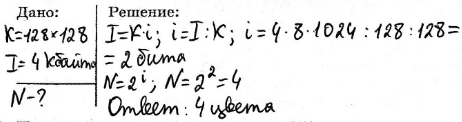 Дано:
K=128×128
I=4 Кбайта
N-?
Решение:
I=K·i; i=I:K; i=4·8·1024:128:128=
=2 бита
N=2^i; N=2²=4
Ответ: 4 цвета